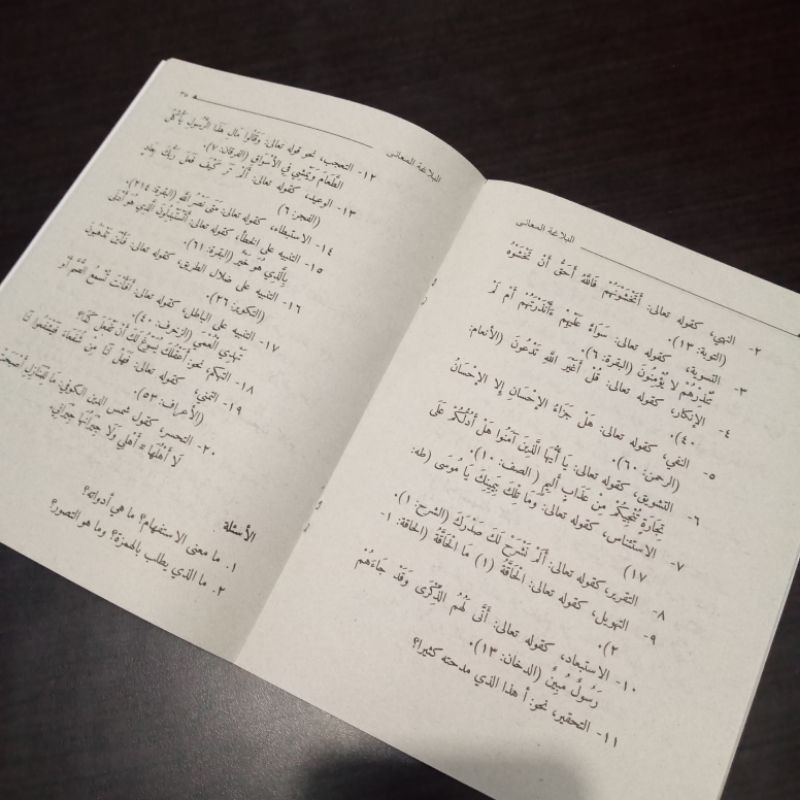 البلاغة المعانى
٢- النهي، كقوله تعالى: أَتَخْشَوْنَهُمْ فَاللّٰهُ أَحَقُّ أَنْ تَخْشَوْهُ
(التوبة: ١٣).
٣- التسوية، كقوله تعالى: سَوَاءٌ عَلَيْهِمْ ءَأَنْذَرْتَهُمْ أَمْ لَمْ
تُنْذِرْهُمْ لا يُؤْمِنُونَ (البقرة: ٦).
٤- الإنكار، كقوله تعالى: قُلْ أَغَيْرَ اللّٰهِ تَدْعُونَ (الأنعام:
٤٠).
٥- النفي، كقوله تعالى: هَلْ جَزَاءُ الإِحْسَانِ إِلا الإِحْسَانُ
(الرحمن: ٦٠).
٦- التشويق، كقوله تعالى: يَا أَيُّهَا الَّذِينَ آمَنُوا هَلْ أَدُلُّكُمْ عَلَى
تِجَارَةٍ تُنْجِيكُمْ مِنْ عَذَابٍ أَلِيمٍ (الصف: ١٠).
٧- الاستئناس، كقوله تعالى: وَمَا تِلْكَ بِيَمِينِكَ يَا مُوسَى (طه:
١٧)
٨- التقرير، كقوله تعالى: أَلَمْ نَشْرَحْ لَكَ صَدْرَكَ (الشرح: ١).
٩- التهويل، كقوله تعالى: الْحَاقَّةُ (١) مَا الْحَاقَّةُ (الحاقة: ١-
٢).
١٠- الاستبعاد، كقوله تعالى: أَنَّى لَهُمُ الذِّكْرَى وَقَدْ جَاءَهُمْ
رَسُولٌ مُبِينٌ (الدخان: ١٣).
١١- التحقير، نحو: أ هذا الذي مدحته كثيرا؟
البلاغة المعانى ٣٥
١٢- التعجب، نحو قوله تعالى: وَقَالُوا مَالِ هَذَا الرَّسُولِ يَأْكُلُ
الطَّعَامَ وَيَمْشِي فِي الأَسْوَاقِ (الفرقان: ٧).
١٣- الوعيد، كقوله تعالى: أَلَمْ تَرَ كَيْفَ فَعَلَ رَبُّكَ بِعَادٍ
(الفجر: ٦)
١٤- الاستبطاء، كقوله تعالى: مَتَى نَصْرُ اللّٰهِ (البقرة: ٢١٤).
١٥- التنبيه على الخطأ، كقوله تعالى: أَتَسْتَبْدِلُونَ الَّذِي هُوَ أَدْنَى
بِالَّذِي هُوَ خَيْرٌ (البقرة: ٦١).
١٦- التنبيه على ضلال الطريق، كقوله تعالى: فَأَيْنَ تَذْهَبُونَ
(التكوير: ٢٦).
١٧- التنبيه على الباطل، كقوله تعالى: أَفَأَنْتَ تُسْمِعُ الصُّمَّ أَوْ
تَهْدِي الْعُمْيَ (الزخرف: ٤٠).
١٨- التهكم، نحو: أَعَقْلُكَ يُسَوِّغُ لَكَ أَنْ تَفْعَلَ كَذَا؟
١٩- التمني، كقوله تعالى: فَهَلْ لَنَا مِنْ شُفَعَاءَ فَيَشْفَعُوا لَنَا
(الأعراف: ٥٣).
٢٠- التحسر، كقول شمس الدين الكوفي: مَا لِلْمَنَازِلِ أَصْبَحَتْ
لَا أَهْلُهَا * أَهْلِي وَلَا جِيرَانُهَا جِيرَانِي.
الأسئلة
١. ما معنى الاستفهام؟ ما هي أدواته؟
٢. ما الذي يطلب بالهمزة؟ وما هو التصور؟